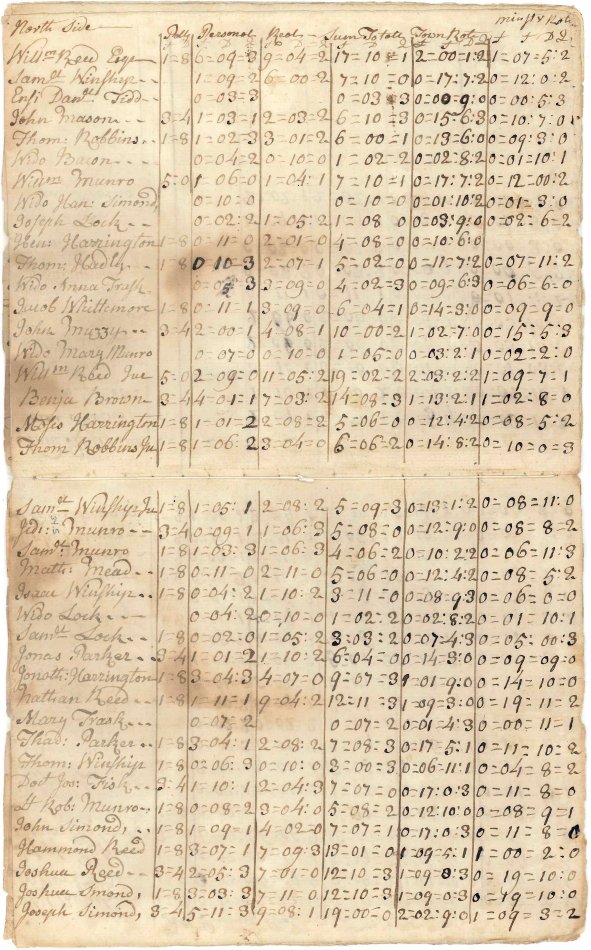 North Side - minstr Rate
Polly Personal Real Sum Totall Town Rate
Willm Reed Esqr 1=8 6=09=3 9=04=2 17=10=1 2=00=1:2 1=07=5:2
Saml Winship 1=09=2 6=00=2 7=10=0 0=17:7:2 0=12:0:2
Ensi Danl Tidd 0=03=3 0=03=3 0=00:9:0 0=00:5:3
John Mason 3=4 1=03=1 2=03=2 6=10=3 0=15:6:3 0=10:7:0
Thom: Robbins 1=8 1=02=3 3=01=2 6=00=1 0=13=6:0 0=09:3:0
Wido Bacon 0=04=2 0=10=0 1=02=2 0=02:8:2 0=01=10:1
Willm Munro 5:0 1=06=0 1=04:1 7=10=1 0=17:7:2 0=12=00:2
Wido Han: Simond, 0=10=0 0=10=0 0=01:10:2 0=01=3:0
Joseph Lock 0=02:2 1=05:2 1=08 0 0=03:9:0 0=02=6=2
Hen: Harrington 1=8 0=11=0 2=01=0 4=08=0 0=10:6:0
Thom: Hadly 1=8 0 10 3 2=07=1 5=02=0 0=11=7:2 0=07=11:2
Wido Anna Trask 3 3=09=0 4=02=3 0=09=6:3 0=06=6=0
Jacob Whittemore 1=8 0=11=1 3=09=0 6=04=1 0=14=3:0 0=09=9=0
John Muzzy 3=4 2=00=1 4=08=1 10=00=2 1=02=7:0 0=15=5:3
Wido Mary Munro 0=07=0 0=10=0 1=05=0 0=03:2:1 0=02=2:0
Willm Reed Jur 5=0 2=09=0 11=05:2 19=02=2 2=03:2:2 1=09=7=1
Benja Brown 3=4 4=01=1 7=03:2 14=08=3 1=13:2:1 1=02=8=0
Moses Harrington 1=8 1=01=2 2=08=2 5=06=0 0=12:4:2 0=08=5:2
Thom Robbins Ju 1=8 1=06:2 3=04=0 6=06=2 0=14:8:2 0=10=0=3
Saml Winship Ju 1=8 1=05:1 2=08:2 5=09=3 0=13=1:2 0=08=11:0
Jedi: Munro 3=4 0=09=1 1=06:3 5=08=0 0=12=9:0 0=08=8=2
Saml: Munro 1=8 1=03:3 1=06:3 4=06=2 0=10:2:2 0=06=11:3
Math: Mead 1=8 0=11=0 2=11=0 5=06=0 0=12:4:2 0=08=5:2
Isaac Winship 1=8 0=04:2 1=10:2 3=11=0 0=08=9:3 0=06=0=0
Wido Lock 0=04:2 0=10=0 1=02:2 0=02:8:2 0=01=10:1
Saml Lock 1=8 0=02=0 1=05:2 3:03:2 0=07:4:3 0=05=00:3
Jonas Parker 3=4 1=01=2 1=10:2 6=04=0 0=14:3:0 0=09=09=0
Jonoth: Harrington 1=8 3=04:3 4=07=0 9=07=3 1=01=9:0 0=14=10=0
Nathan Reed 1=8 1=11=1 9=04:2 12=11=3 1=09=3:0 0=19=11=2
Mary Trask 0=07=2 0=07=2 0=01=4:3 0=00=11=1
Thad: Parker 1=8 3=04:1 2=08:2 7=08=3 0=17=5:1 0=11=10=2
Thom: Winship 1=8 0=06:3 0=10:0 3=00=3 0=06=11:1 0=04=8=2
Doct Jos: Fisk 3=4 1=10:1 2=04:3 7=07=0 0=17:0:3 0=11=8=0
Lt Rob: Munro 1=8 0=08=2 3=04:0 5=08=2 0=12:10:0 0=08=9=1
John Simond, 1=8 1=09=1 4=02=0 7=07=1 0=17:0:3 0=11=8=0
Hammond Reed 1=8 3=07=1 7=09:3 13=01=0 1=09=5:1 1=00=2:0
Joshua Reed 3=4 2=05:3 7=01=0 12=10:3 1=09=8:3 0=19=10:0
Joshua Smond, 1=8 3=03:3 7=11=0 12=10=3 1=09=0:3 0=19=10:0
Joseph Simond, 3=4 5=11=3 9=08:1 19=00=0 2=02=9:0 1=09=3=2